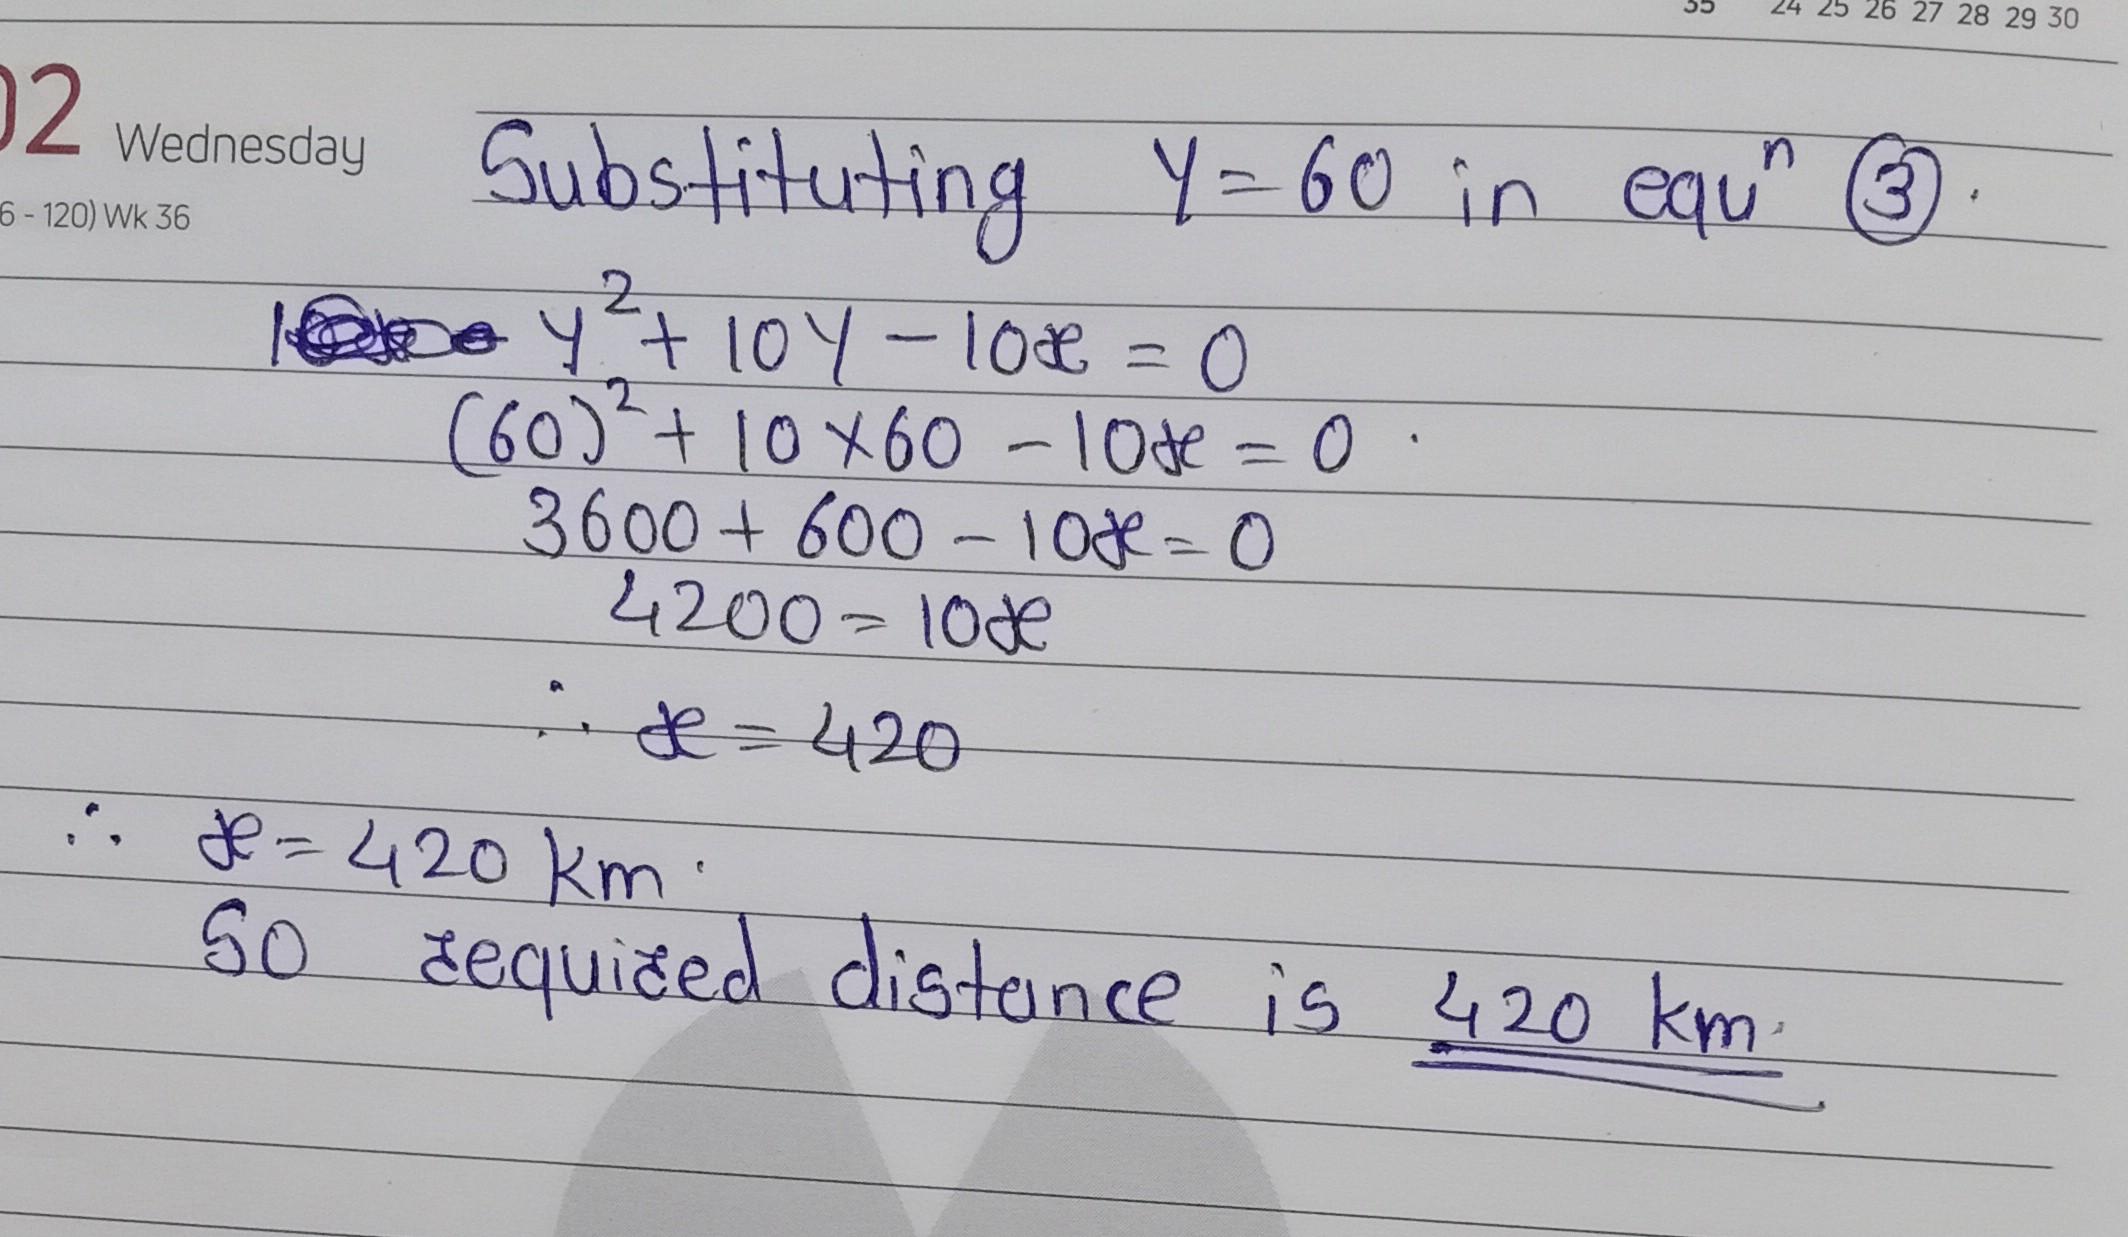 35 24 25 26 27 28 29 30
02 Wednesday
6 - 120) Wk 36
Substituting Y = 60 in equⁿ ③.
y² + 10y - 10x = 0
(60)² + 10 × 60 - 10x = 0.
3600 + 600 - 10x = 0
4200 = 10x
∴ x = 420
∴ x = 420 km.
So required distance is 420 km.